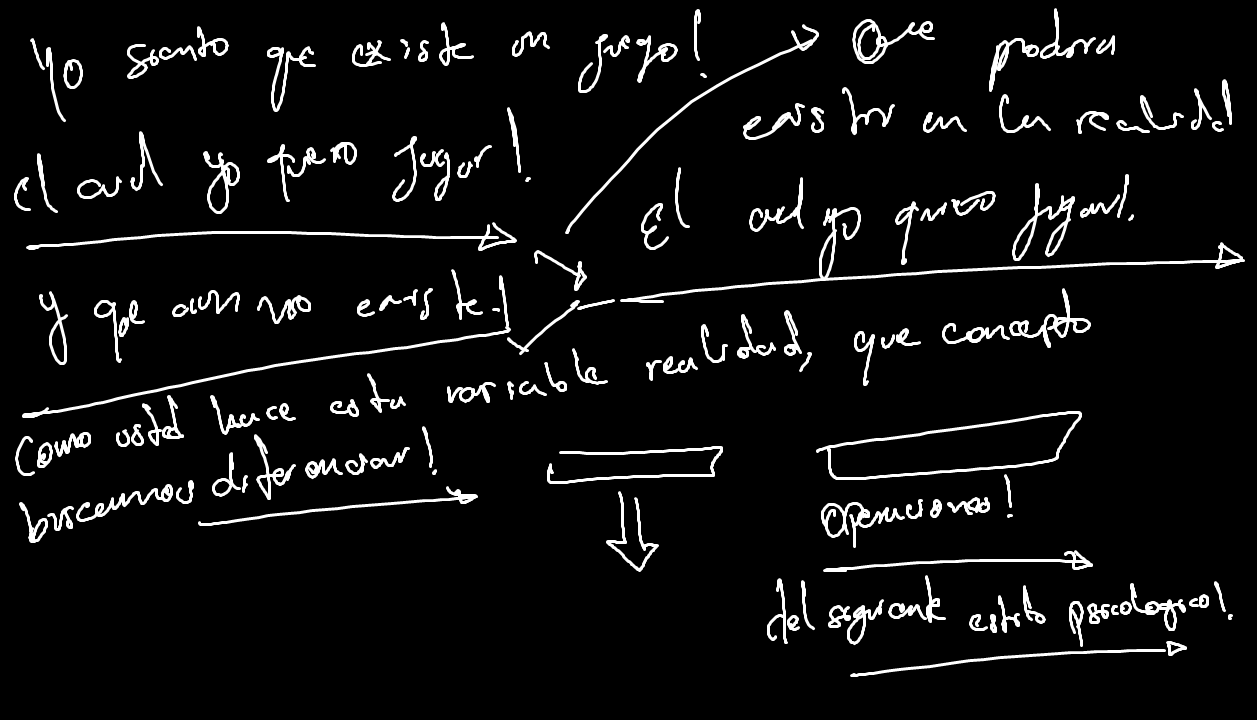 Yo siento que existe un juego!
el cual yo quiero jugar!
Que podria
existir en la realidad
El cual yo quiero jugar!.
y que aun no existe.!
Como usted hace esta variable realidad, que concepto
buscamos diferenciar!
operaciones!
del siguiente estilo psicologico!.